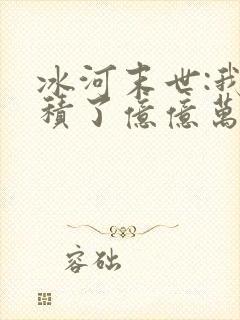 冰河末世:我
積了億億萬
容础